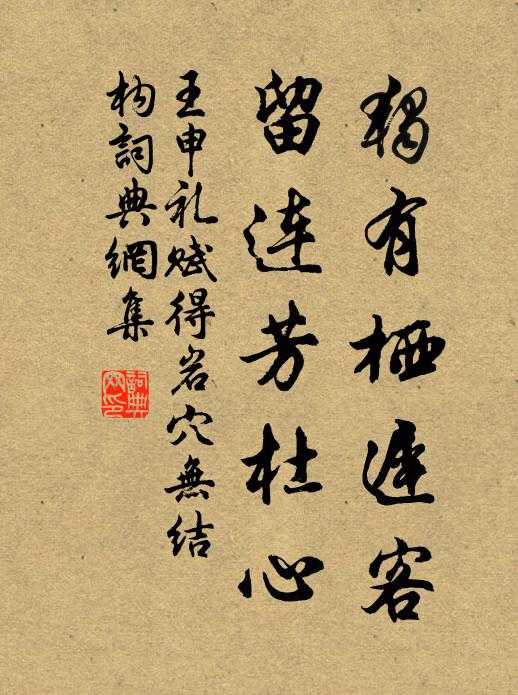 獨有栖遲客
留連芳杜心
王申礼賦得岩穴無結
构詞典網集
詞典
网印